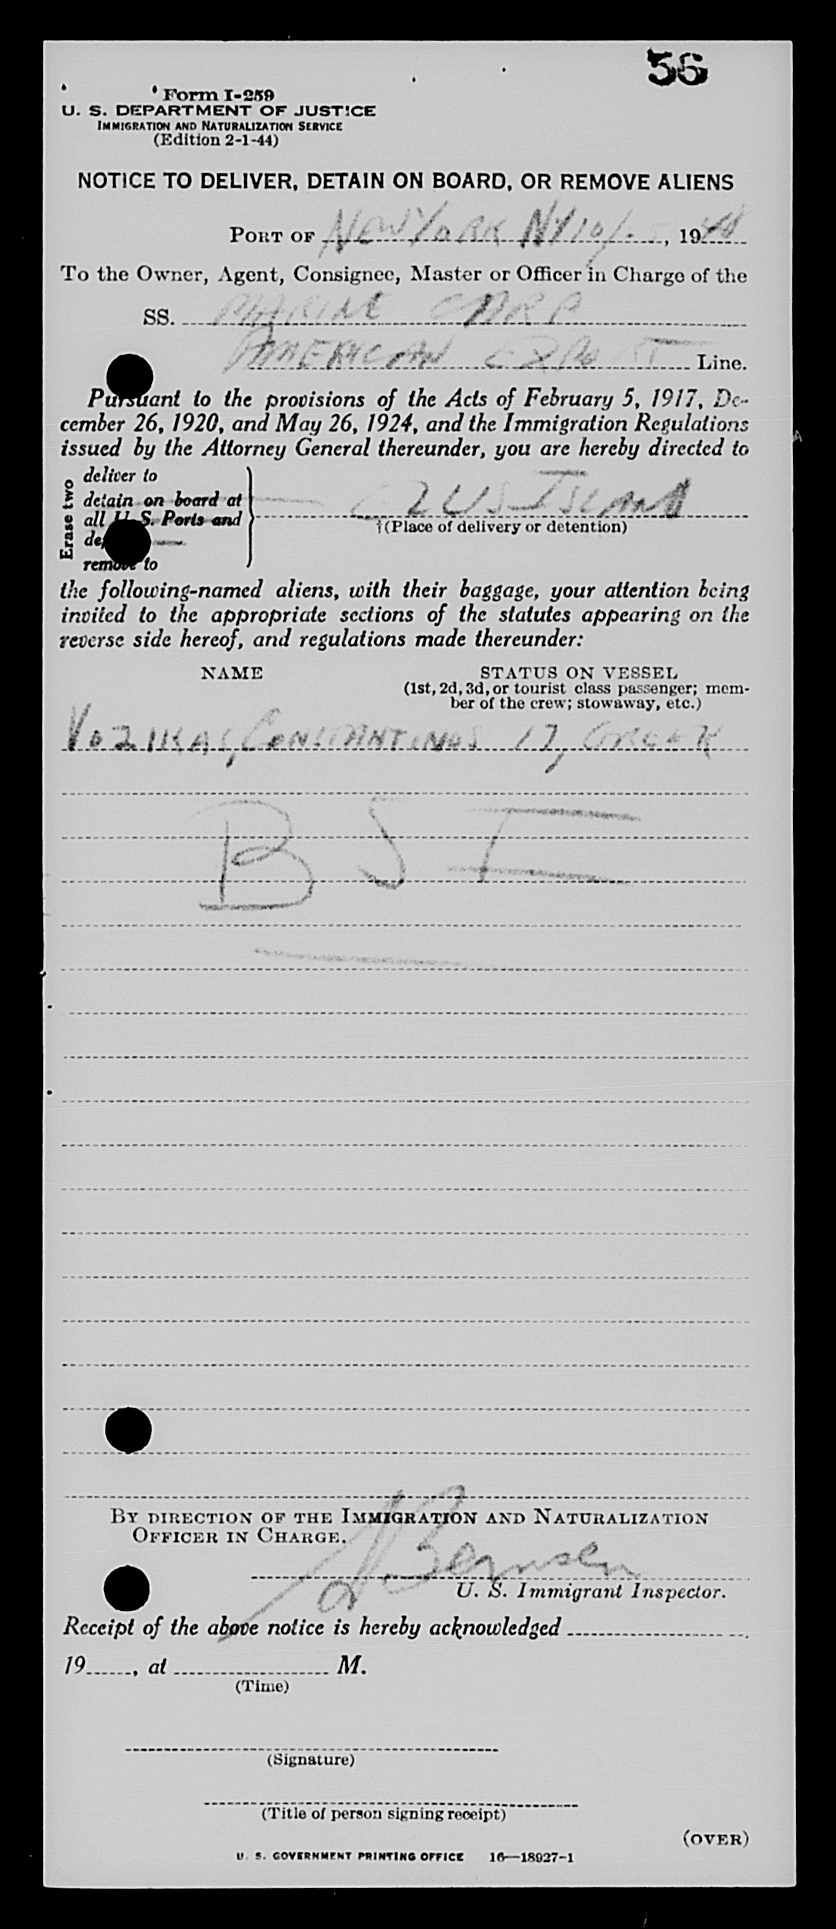 56
Form I-259
U. S. DEPARTMENT OF JUSTICE
IMMIGRATION AND NATURALIZATION SERVICE
(Edition 2-1-44)
NOTICE TO DELIVER, DETAIN ON BOARD, OR REMOVE ALIENS
PORT OF NEW YORK NY 10/ , 1948
To the Owner, Agent, Consignee, Master or Officer in Charge of the
SS. MARINE CARP
AMERICAN EXPORT Line.
Pursuant to the provisions of the Acts of February 5, 1917, De-
cember 26, 1920, and May 26, 1924, and the Immigration Regulations
issued by the Attorney General thereunder, you are hereby directed to
Erase two
deliver to
detain on board at
all U. S. Ports and
remove to
ELLIS ISLAND
†(Place of delivery or detention)
the following-named aliens, with their baggage, your attention being
invited to the appropriate sections of the statutes appearing on the
reverse side hereof, and regulations made thereunder:
NAME STATUS ON VESSEL
(1st, 2d, 3d, or tourist class passenger; mem-
ber of the crew; stowaway, etc.)
VOZIKAS, CONSTANTINOS 17, GREEK
B S I
BY DIRECTION OF THE IMMIGRATION AND NATURALIZATION
OFFICER IN CHARGE.
U. S. Immigrant Inspector.
Receipt of the above notice is hereby acknowledged
19 , at M.
(Time)
(Signature)
(Title of person signing receipt)
(OVER)
U. S. GOVERNMENT PRINTING OFFICE 16—18927-1